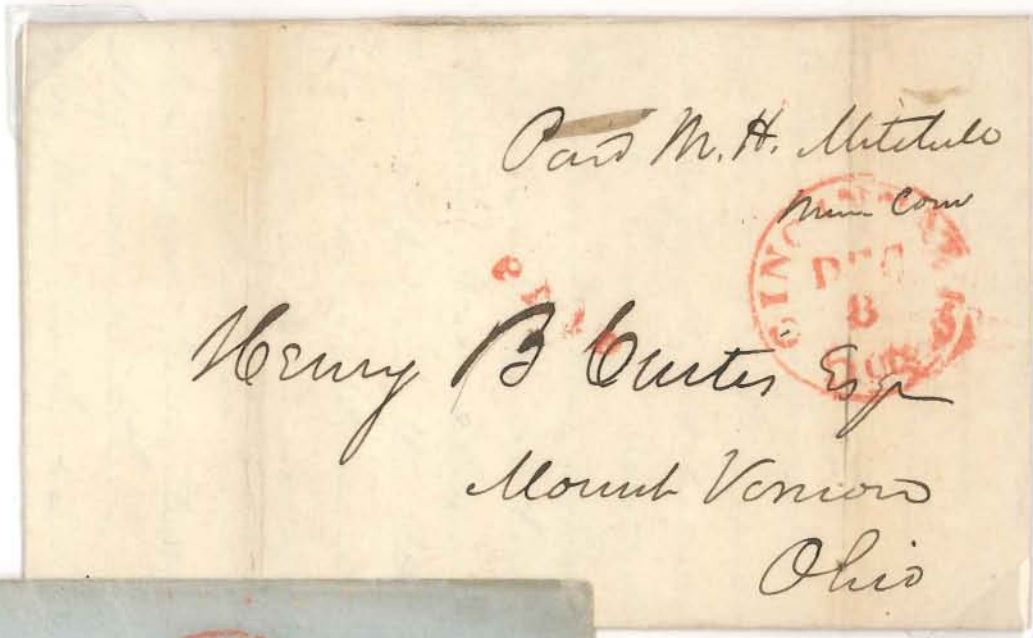 Paid M. H. Mitchell
Mem Conv
CINCINNATI
DEC
8
PAID
Henry B Curtis Esqr
Mount Vernon
Ohio